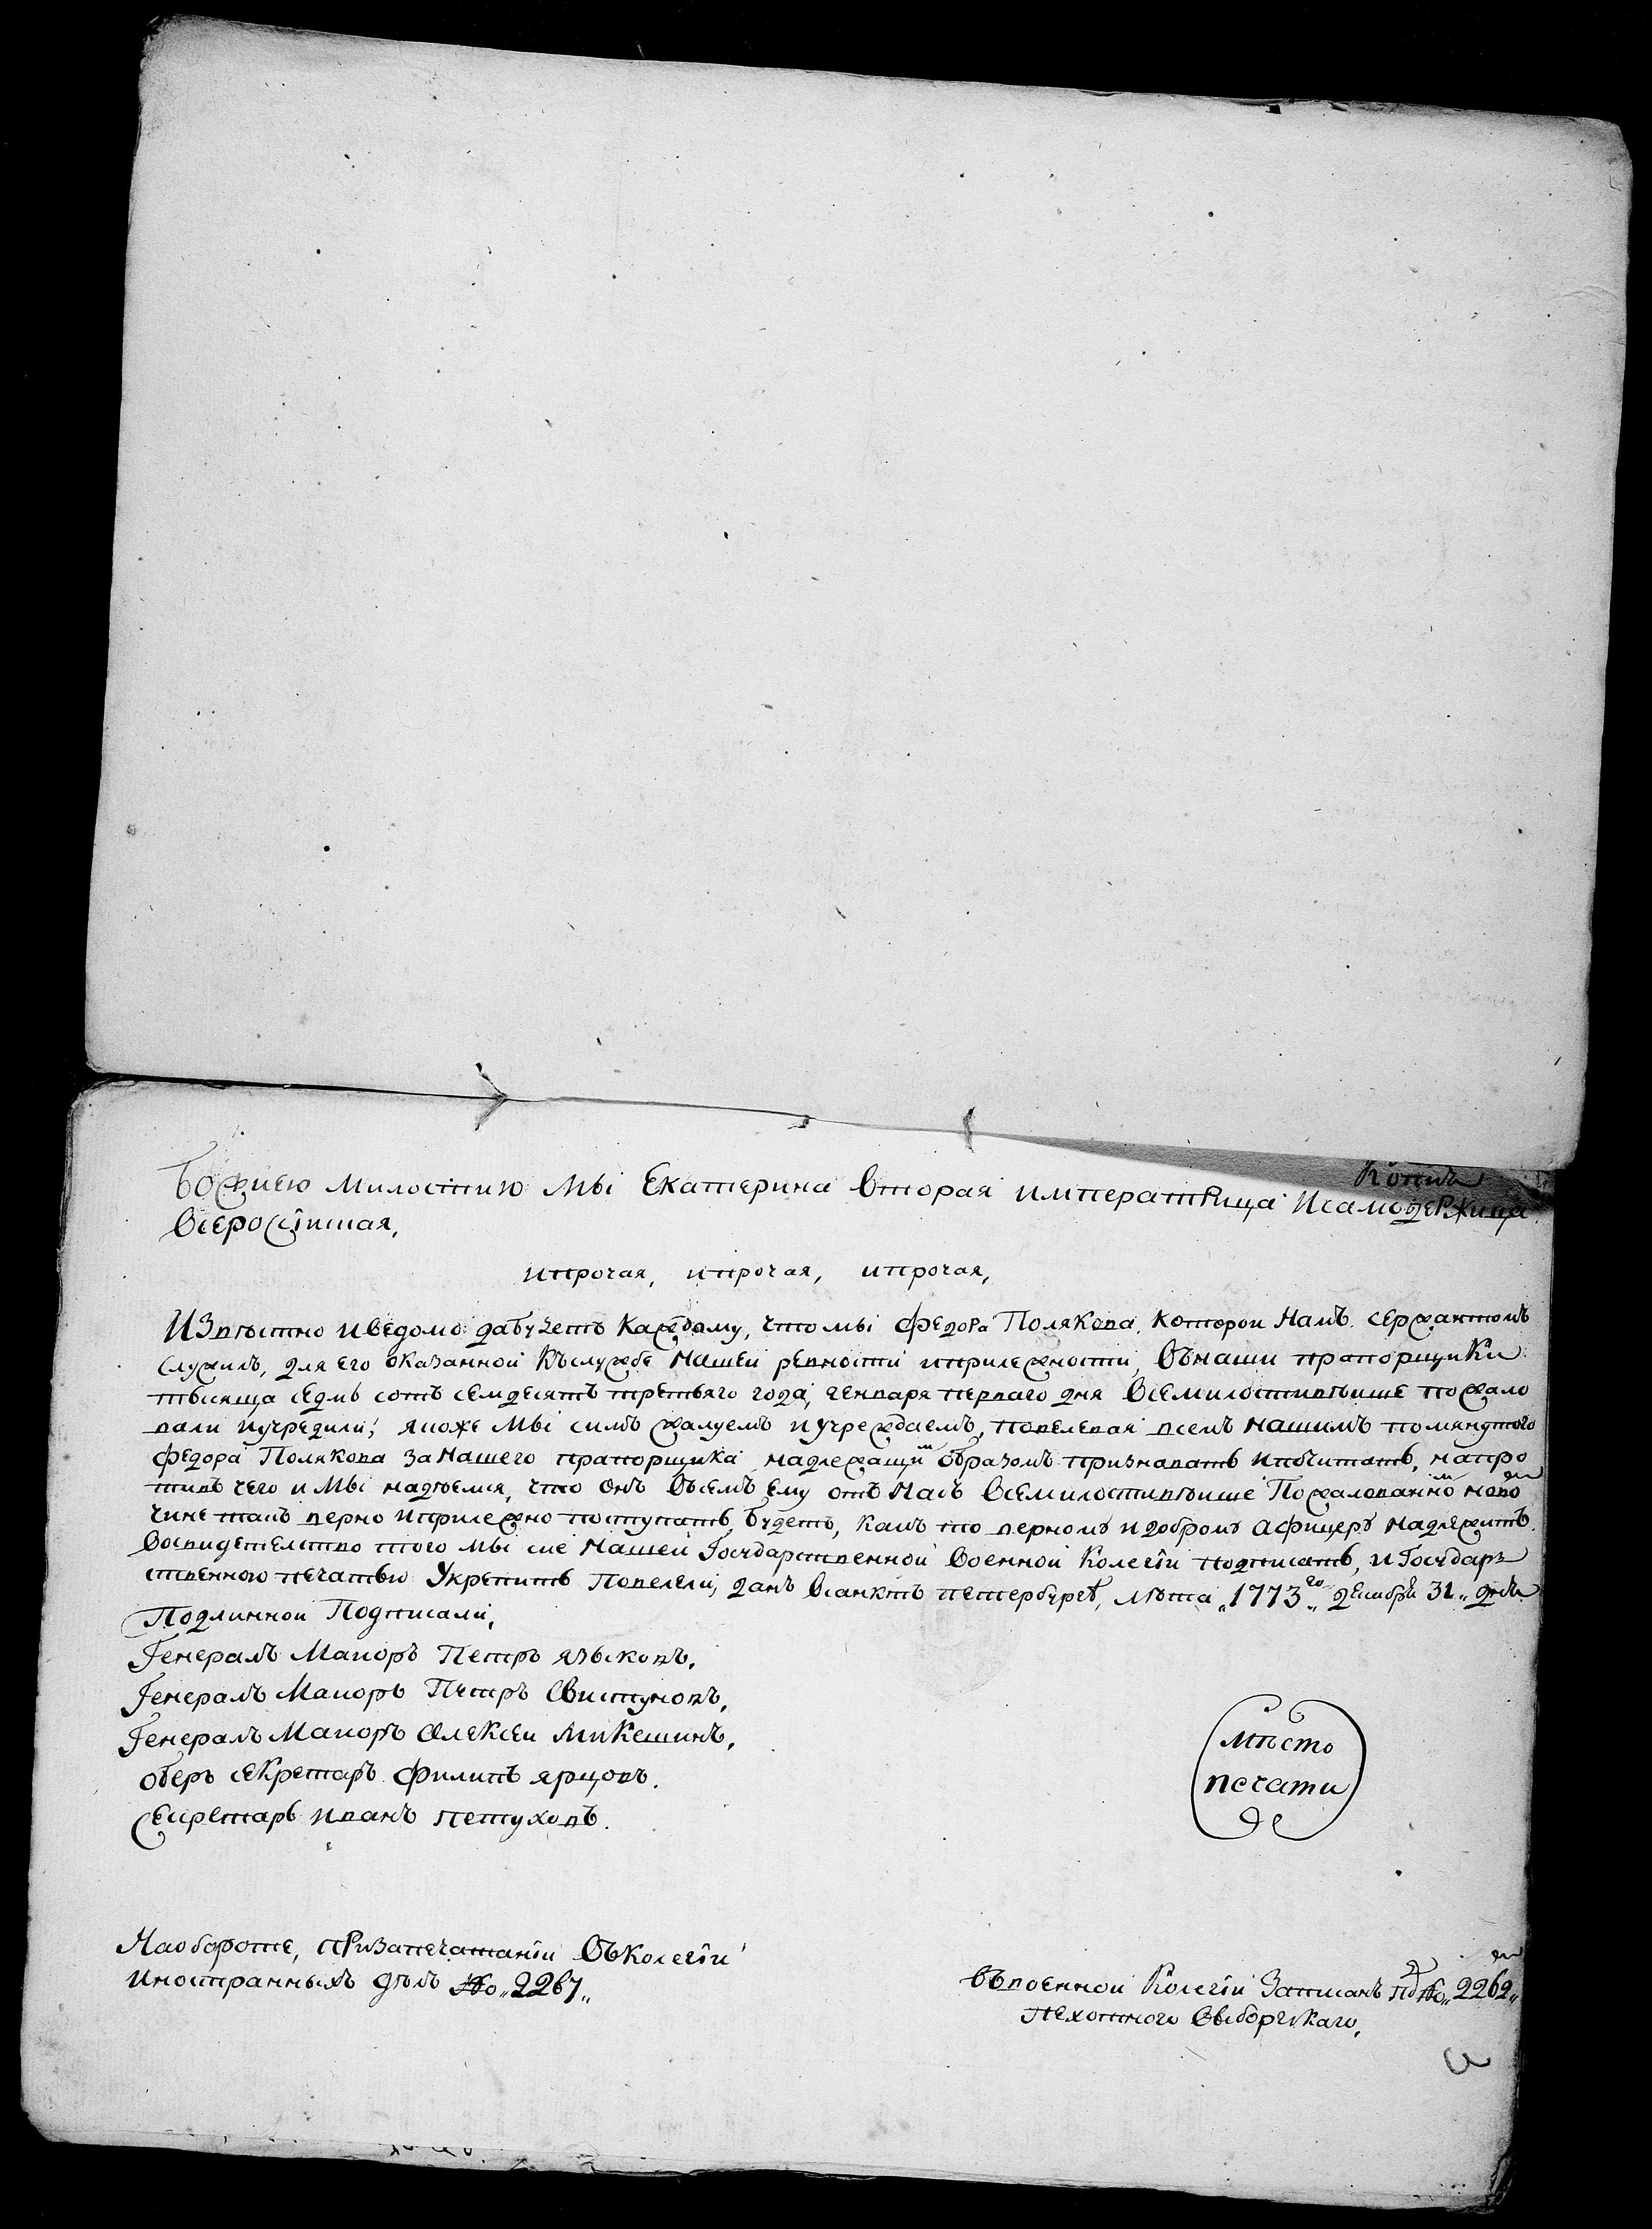 Копия
Божиею милостию мы Екатерина вторая императрица и самодержица
всеросїиская,
и прочая, и прочая, и прочая,
Известно и ведомо да будетъ каждому, что мы Федора Полякова, которои намъ сержантомъ
служилъ, для его оказанной къ службе нашей ревности и прилежности, въ наши прапорщики
тысяща седмь сотъ семдесятъ третьяго года, генваря перваго дня всемилостивѣише пожало
вали и учредили; якоже мы симъ жалуемъ и учреждаемъ, повелевая всемъ нашимъ помянутого
Федора Полякова за нашего прапорщика надлежащим образомъ признавать и почитать, напро
тивъ чего и мы надѣемся, что онъ въ семъ ему отъ насъ всемилостивѣише пожалованном новом
чине такъ верно и прилежно поступать будетъ, какъ то верному и доброму афицеру надлежитъ.
Во свидетелство того мы сие нашей Государственной военной колегїи подписать, и Государ
ственною печатью укрепить повелели, данъ в санктъ петербурге, лѣта „1773„го декабря 31„ дня
Подлинной подписали,
Генералъ маиоръ Петръ языковъ.
Генералъ маиоръ Петръ Свистуновъ,
Генералъ маиоръ Алексеи Микешинъ,
оберъ секретарь Филипъ ярцовъ.
Секретарь иванъ петуховъ.
место
печати
На обороте, при запечатанїи въ колегїи
иностранныхъ дѣлъ №„ 2267„
въ военной колегїи записанъ под №„ 2262„
пехотного выборгскаго,
3